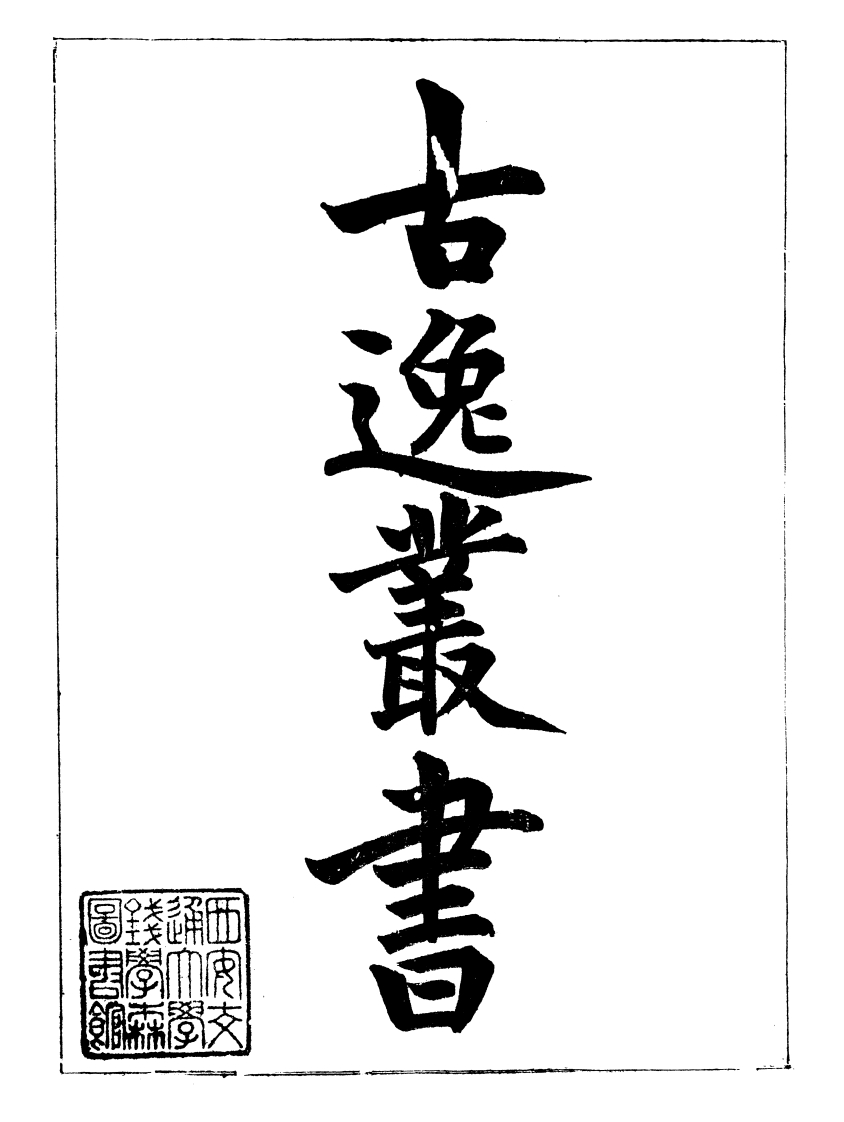 古逸叢書
西安交
通大學
錢學森
圖書館